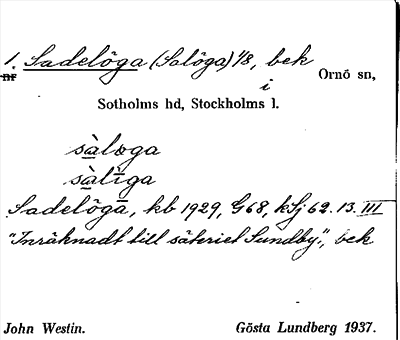 1. Sadelöga (Salöga) 1/8, bek
Bf
i
Ornö sn,
Sotholms hd, Stockholms l.
sàlɷga
sàlīga
Sadelöga, kb 1929, G68, kSj 62.13.III
"Inräknadt till säteriet Sundby", bek
John Westin. Gösta Lundberg 1937.